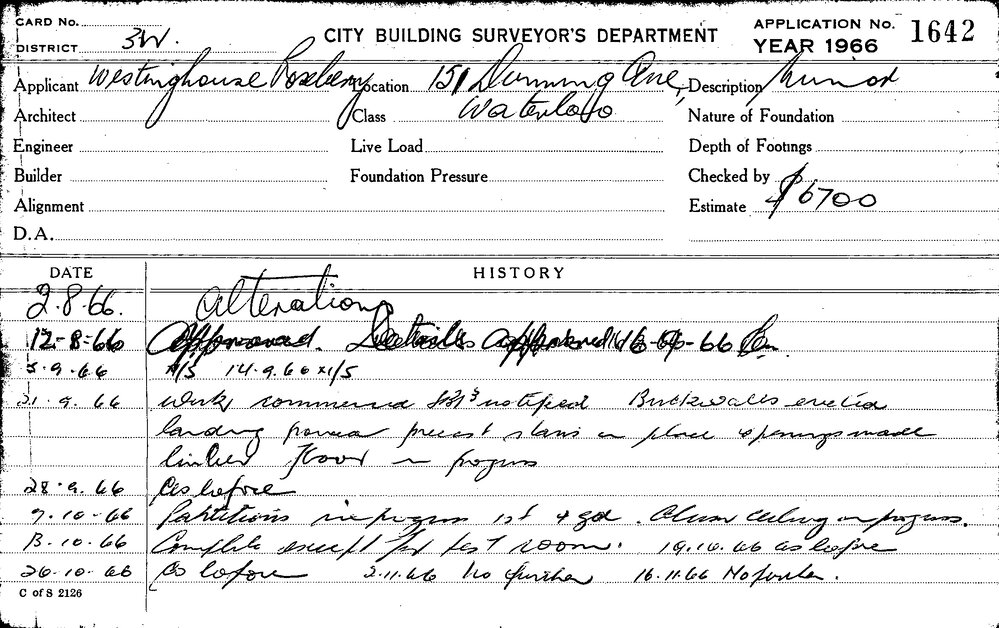 CARD No.
DISTRICT 3W.
CITY BUILDING SURVEYOR'S DEPARTMENT
APPLICATION No. 1642
YEAR 1966
Applicant Westinghouse Rosebery Location 151 Dunning Ave, Description Minor
Architect Class Waterloo Nature of Foundation
Engineer Live Load Depth of Footings
Builder Foundation Pressure Checked by
Alignment Estimate $6700
D.A.
DATE HISTORY
2.8.66. Alterations
12-8-66 Approved. Details approved
5.9.66 N/S 14.9.66 N/S
21.9.66 Work commenced notified Brickwalls erected
landing precast stairs in place openings made
timber floor in progress
28.9.66 As before
7.10.66 Partitions in progress 1st & gd. ceiling in progress.
13.10.66 Complete except for test room. 19.10.66 as before
26.10.66 As before 2.11.66 No further 16.11.66 No further.
C of S 2126